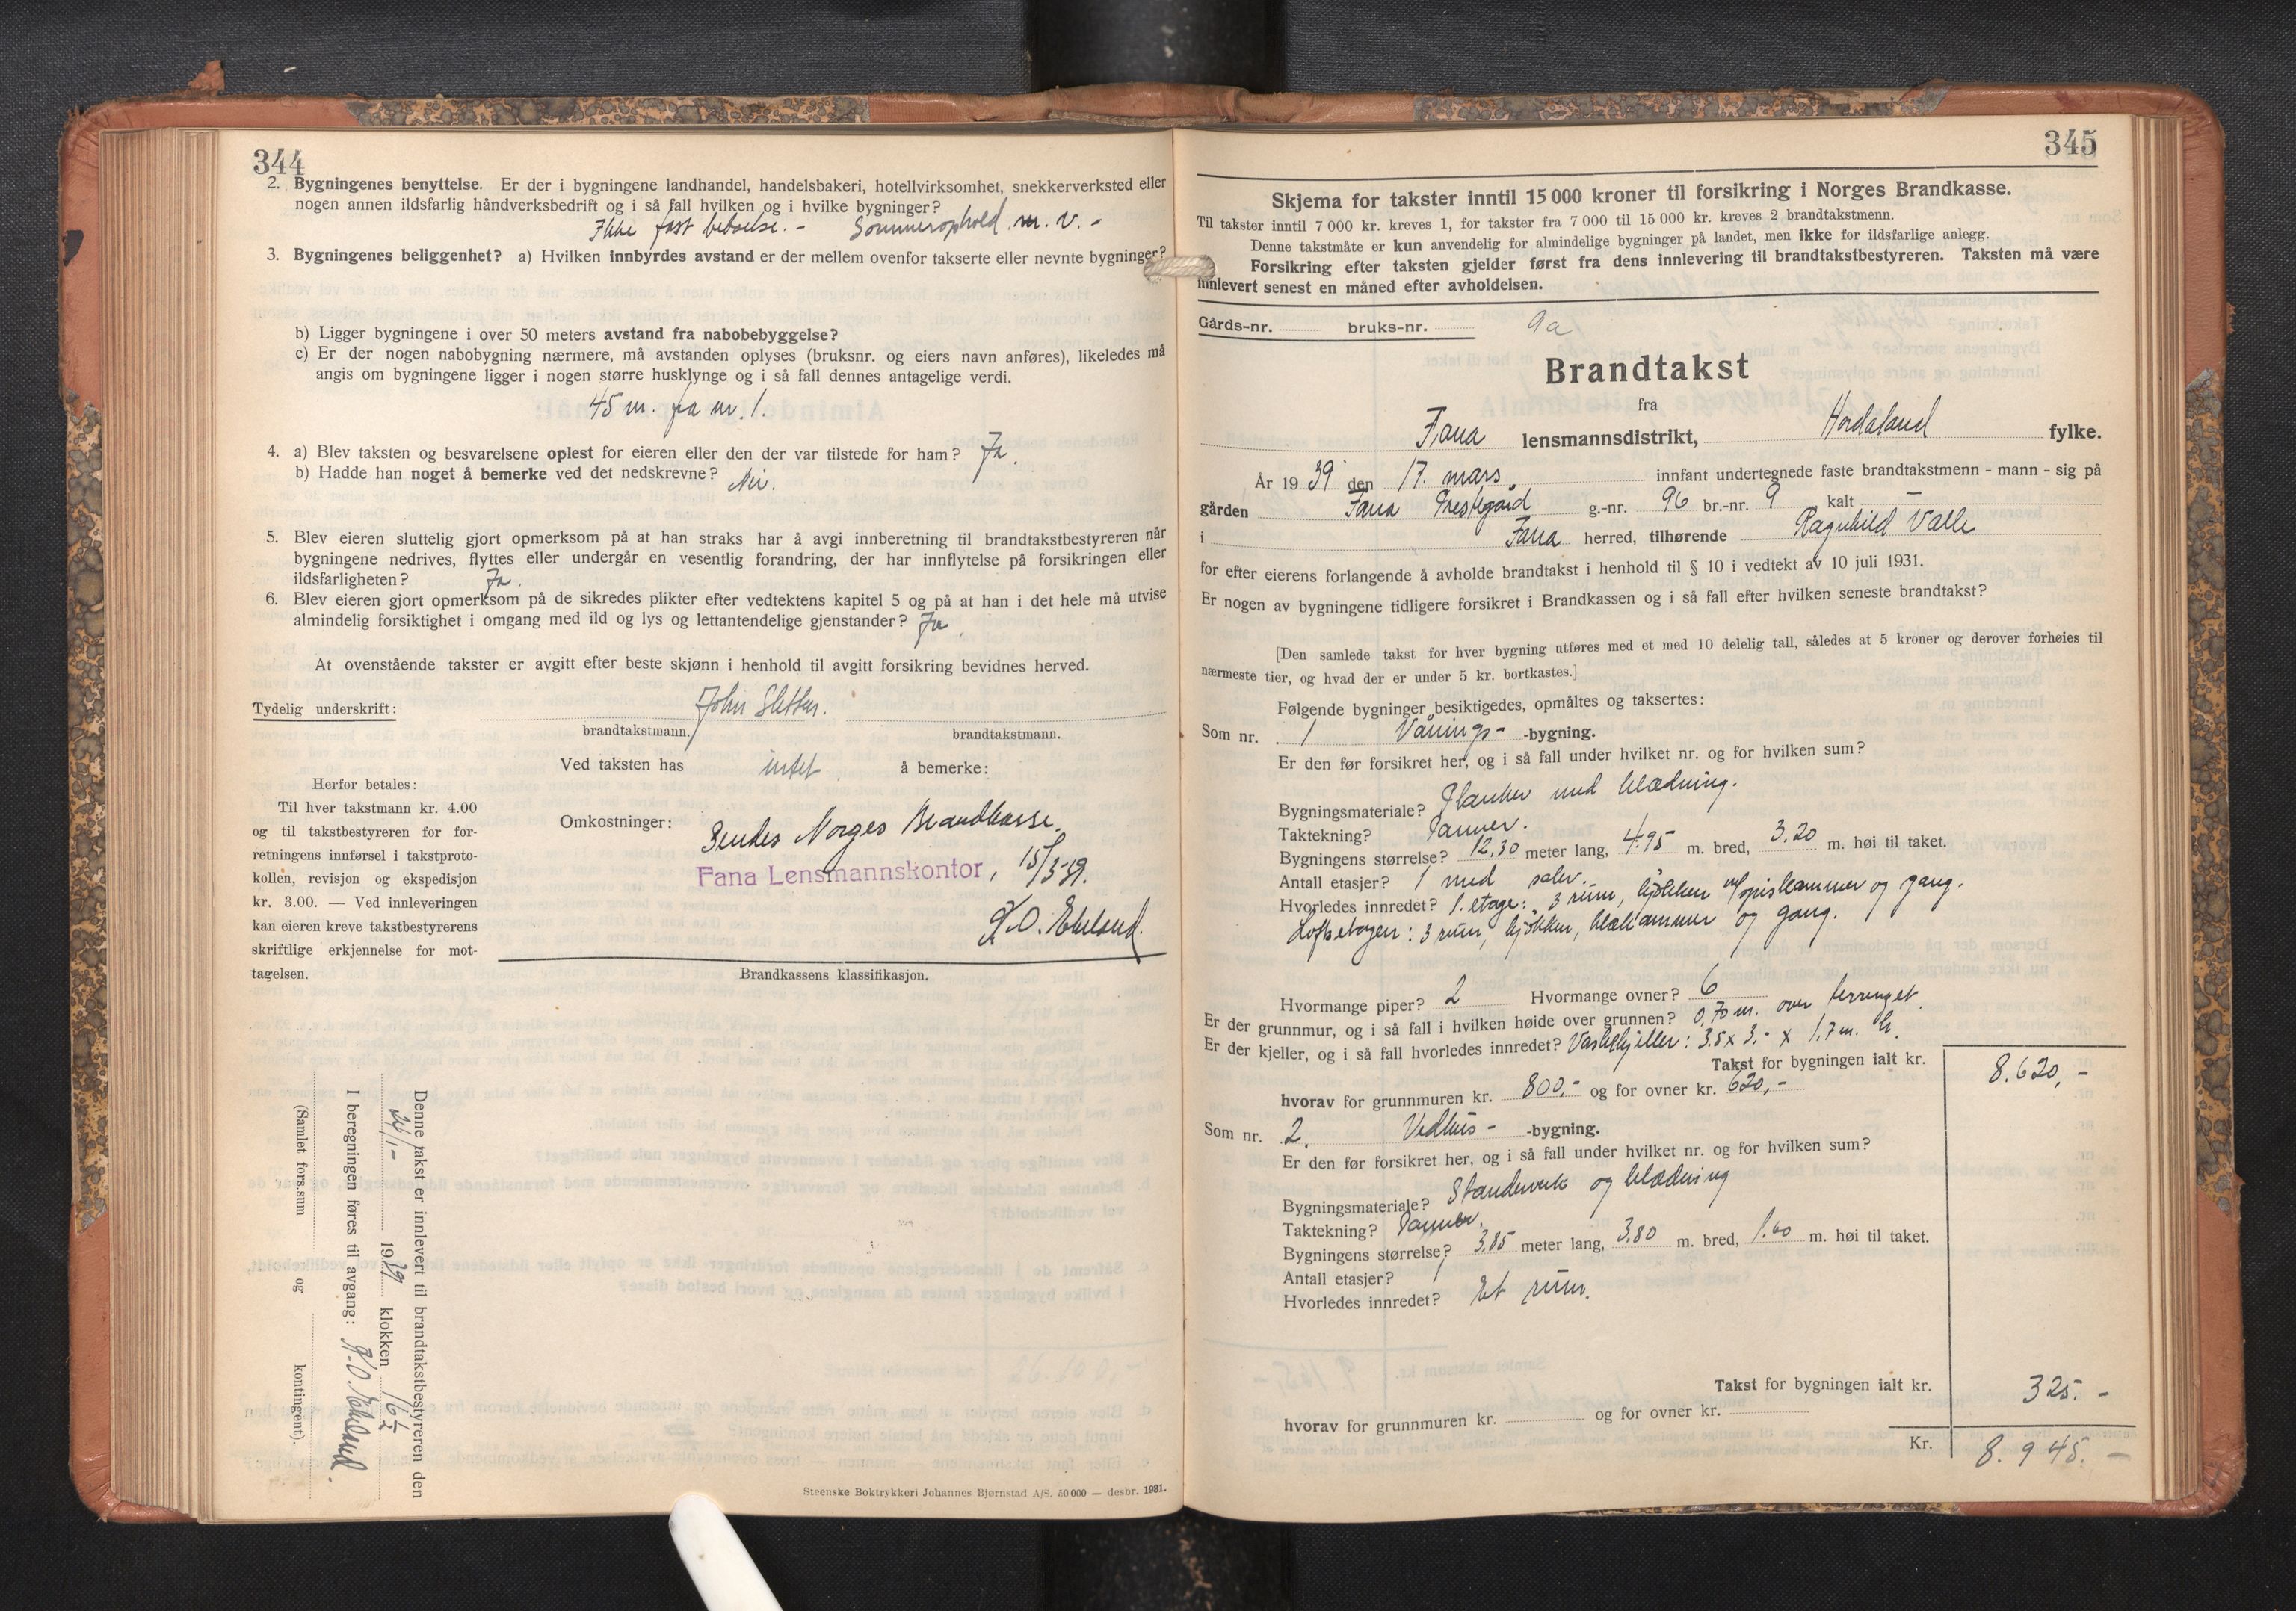 344
2. Bygningenes benyttelse. Er der i bygningene landhandel, handelsbakeri, hotellvirksomhet, snekkerverksted eller
nogen annen ildsfarlig håndverksbedrift og i så fall hvilken og i hvilke bygninger?
Ikke fast beboelse. - Sommerophold m. v. -
3. Bygningenes beliggenhet? a) Hvilken innbyrdes avstand er der mellem ovenfor takserte eller nevnte bygninger?
b) Ligger bygningene i over 50 meters avstand fra nabobebyggelse?
c) Er der nogen nabobygning nærmere, må avstanden oplyses (bruksnr. og eiers navn anføres), likeledes må
angis om bygningene ligger i nogen større husklynge og i så fall dennes antagelige verdi.
45 m. fra nr. 1.
4. a) Blev taksten og besvarelsene oplest for eieren eller den der var tilstede for ham? Ja.
b) Hadde han noget å bemerke ved det nedskrevne? Nei.
5. Blev eieren sluttelig gjort opmerksom på at han straks har å avgi innberetning til brandtakstbestyreren når
bygningene nedrives, flyttes eller undergår en vesentlig forandring, der har innflytelse på forsikringen eller
ildsfarligheten? Ja.
6. Blev eieren gjort opmerksom på de sikredes plikter efter vedtektens kapitel 5 og på at han i det hele må utvise
almindelig forsiktighet i omgang med ild og lys og lettantendelige gjenstander? Ja
At ovenstående takster er avgitt efter beste skjønn i henhold til avgitt forsikring bevidnes herved.
Tydelig underskrift: John Sletten.
brandtakstmann. brandtakstmann.
Ved taksten has intet å bemerke:
Herfor betales:
Til hver takstmann kr. 4.00
og til takstbestyreren for for-
retningens innførsel i takstproto-
kollen, revisjon og ekspedisjon
kr. 3.00. — Ved innleveringen
kan eieren kreve takstbestyrerens
skriftlige erkjennelse for mot-
tagelsen.
Omkostninger:
Sendes Norges Brandkasse.
Fana Lensmannskontor, 15/3-39.
Brandkassens klassifikasjon.
Denne takst er innlevert til brandtakstbestyreren den
24/1- 1939 klokken 16½
I beregningen føres til avgang:
(Samlet fors.sum og kontingent).
Steenske Boktrykkeri Johannes Bjørnstad A/S. 50 000 — desbr. 1931.
345
Skjema for takster inntil 15 000 kroner til forsikring i Norges Brandkasse.
Til takster inntil 7 000 kr. kreves 1, for takster fra 7 000 til 15 000 kr. kreves 2 brandtakstmenn.
Denne takstmåte er kun anvendelig for almindelige bygninger på landet, men ikke for ildsfarlige anlegg.
Forsikring efter taksten gjelder først fra dens innlevering til brandtakstbestyreren. Taksten må være
innlevert senest en måned efter avholdelsen.
Gårds-nr. bruks-nr. 9a
Brandtakst
fra
Fana lensmannsdistrikt, Hordaland fylke.
År 1939 den 17. mars innfant undertegnede faste brandtakstmenn - mann - sig på
gården Fana Prestegård g.-nr. 96 br.-nr. 9 kalt —
i Fana herred, tilhørende Ragnhild Valle
for efter eierens forlangende å avholde brandtakst i henhold til § 10 i vedtekt av 10 juli 1931.
Er nogen av bygningene tidligere forsikret i Brandkassen og i så fall efter hvilken seneste brandtakst?
[Den samlede takst for hver bygning utføres med et med 10 delelig tall, således at 5 kroner og derover forhøies til
nærmeste tier, og hvad der er under 5 kr. bortkastes.]
Følgende bygninger besiktigedes, opmåltes og taksertes:
Som nr. 1 Vånings- -bygning.
Er den før forsikret her, og i så fall under hvilket nr. og for hvilken sum?
Bygningsmateriale? Planker med klædning.
Taktekning? Panner.
Bygningens størrelse? 12,30 meter lang, 4.95 m. bred, 3.20 m. høi til taket.
Antall etasjer? 1 med
Hvorledes innredet? 1. etage: 3 rum, kjökken m/spiskammer og gang.
Loftsetagen: 3 rum, kjökken, klækammer og gang.
Hvormange piper? 2 Hvormange ovner? 6
Er der grunnmur, og i så fall i hvilken høide over grunnen? 0,70 m. over terrenget.
Er der kjeller, og i så fall hvorledes innredet? Vaskekjeller: 3.5 x 3,- x 1,7 m. h.
Takst for bygningen ialt kr. 8.620,-
hvorav for grunnmuren kr. 800,- og for ovner kr. 620,-
Som nr. 2. Vedhus- -bygning.
Er den før forsikret her, og i så fall under hvilket nr. og for hvilken sum?
Bygningsmateriale? Standverk og klædning
Taktekning? Panner.
Bygningens størrelse? 3.85 meter lang, 3.80 m. bred, m. høi til taket.
Antall etasjer? 1
Hvorledes innredet? Et rum.
Takst for bygningen ialt kr. 325.-
hvorav for grunnmuren kr. og for ovner kr.
Kr. 8.945.-